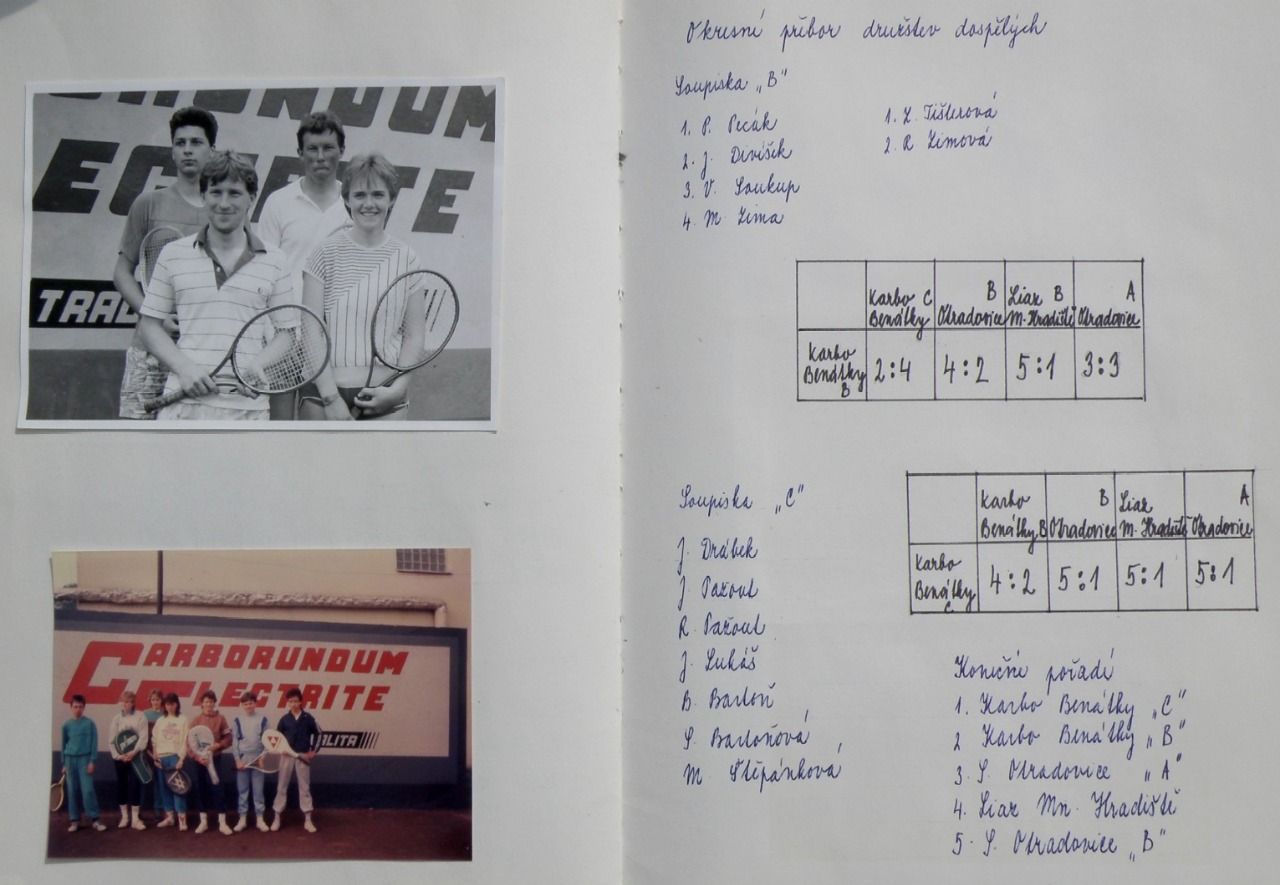 CARBORUNDUM
ELECTRITE
TRAD
CARBORUNDUM
ELECTRITE
ALITA
Okresní přebor družstev dospělých
Soupiska „B"
1. P. Pecák
2. J. Divíšek
3. V. Soukup
4. M. Zima
1. Z. Tišlerová
2. R Zimová
Karbo C Benátky
B Otradovice
Liaz B M. Hradiště
A Otradovice
Karbo Benátky B 2:4 4:2 5:1 3:3
Soupiska „C"
J. Drábek
J. Pažout
R. Pažout
J. Lukáš
B. Bartoň
S. Bartoňová
M. Štěpánková
Karbo Benátky B
B Otradovice
Liaz M. Hradiště
A Otradovice
Karbo Benátky C 4:2 5:1 5:1 5:1
Konečné pořadí
1. Karbo Benátky „C"
2 Karbo Benátky „B"
3. S. Otradovice „A"
4. Liaz Mn. Hradiště
5. S. Otradovice „B"